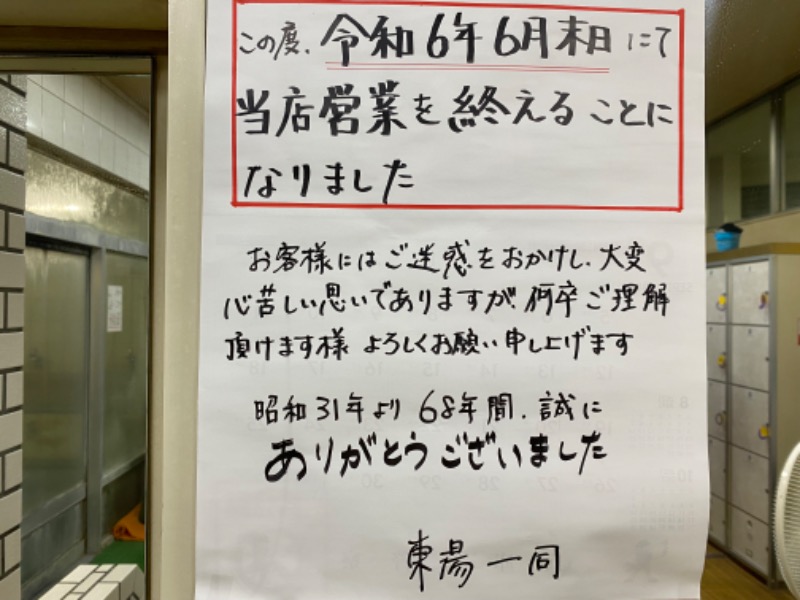 この度、令和6年6月末日にて
当店営業を終えることに
なりました
お客様にはご迷惑をおかけし、大変
心苦しい思いでありますが、何卒ご理解
頂けます様 よろしくお願い申し上げます
昭和31年より 68年間、誠に
ありがとうございました
東湯一同